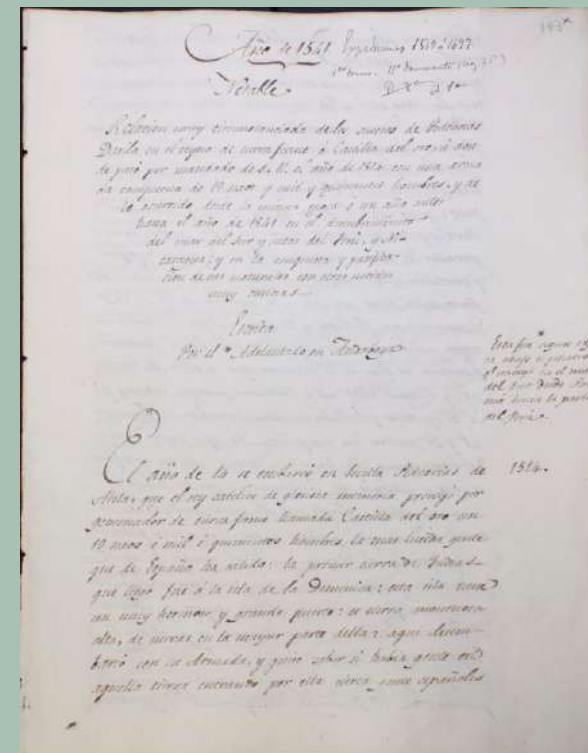 Año de 1541. Expediciones 1519 à 1697
Notable.
Relacion muy circunstanciada de los sucesos de Pedrarias
Davila en el reyno de tierra firme ò Castilla del oro, à don
de pasó por mandado de S. M. el año de 1514 con una arma
da compuesta de 19 naos y mil y quinientos hombres, y de
lo acaecido desde la misma epoca
hasta el año de 1541 en el descubrimiento
del mar del Sur y costas del Perú, y Ni-
caragua; y en la conquista y pacifica-
cion de sus naturales con otras noticias
muy curiosas.
Escrita
Por el Adelantado Andagoya
del Sur desde
hacia la parte
del Perú.
El año de 14 se embarcó en Sevilla Pedrarias de
Avila, que el rey católico de gloriosa memoria proveyó por
governador de tierra firme llamada Castilla del oro con
19 naos è mil è quinientos hombres, la mas lucida gente
que de España ha salido: la primer tierra de Indias
que llegó fue à la isla de la Dominica: esta isla tiene
un muy hermoso y grande puerto: es tierra montuosa
alta, de sierras en la mayor parte della: aqui desem-
barcó con su Armada, y quiso saber si habia gente en
aquella tierra entrando por ella cierta gente españoles
1514.